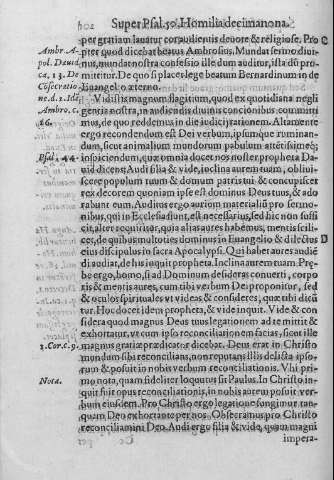 802 Super Psal. 50. Homilia decimanona.
per gratiam lauatur cor, audientis deuote & religiose. Pro
Ambr. A- pter quod dicebat beatus Ambrosius, Mundat sermo diui-
pol. Dauid nus, mundat nostra confessio ille dum auditur, ista dū pro
ca, 13. De mittitur. De quo si placet lege beatum Bernardinum in de
Cōsecratio Euangelio æterno.
ne. d. 1. Vidistis magnum flagitium, quod ex quotidiana negli
Ambro. c. gentia nostra, in audiendis diuinis concionibus committi
26. mus, de quo reddemus in die iudicij rationem. Altamente
ergo recondendum est Dei verbum, ipsumque ruminan-
dum, sicut animalium mundorum pabulum attētissimè;
Psal. 44. inspiciendum, quæ omnia docet nos noster propheta Da
uid dicens: Audi filia & vide, inclina aurem tuam, obliui-
scere populum tuum & domum patris tui: & concupiscet
rex decorem quoniam ipse est dominus Deus tuus, & ado
rabunt eum. Auditus ergo aurium materiali pro sermo-
nibus, qui in Ecclesia fiunt, est necessarius, sed hic non suffi
cit, alter requiritur, quia alias aures habemus, mentis scili-
cet, de quibus multoties dominus in Euangelio & dilectus
eius discipulus in sacra Apocalypsi. Qui habet aures audiē
di audiat, de his inquit propheta. Inclina aurem tuam. Præ-
be ergo homo, si ad Dominum desideras conuerti, corpo
ris & mentis aures, cum tibi verbum Dei proponitur, sed
& oculos spirituales vt videas & consideres, quæ tibi dicū
tur. Hoc docet idem propheta, & vide inquit. Vide & con
sidera quod magnus Deus tuus legationem ad te mittit &
exhortatur, vt cum ipso reconciliationem facias, sicut ille
2. Cor. c. 5. magnus gratiæ prædicator dicebat. Deus erat in Christo
mundum sibi reconcilians, non reputans illis delicta ipso-
rum & posuit in nobis verbum reconciliationis. Vbi pri-
Nota. mo nota, quam fideliter loquutus sit Paulus. In Christo in-
quit fuit opus reconciliationis, in nobis autem posuit ver-
bum eiusdem. Pro Christo ergo legatione fungimur tan-
quam Deo exhortante per nos. Obsecramus pro Christo
reconciliamini Deo. Audi ergo filia & vide, quam magni
impera-